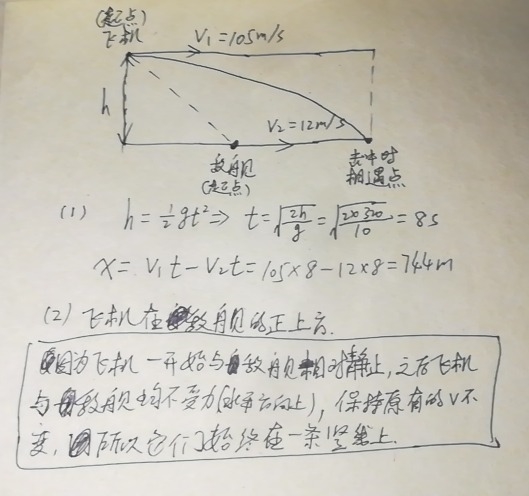 (起点)
飞机
V₁=105m/s
h
V₂=12m/s
敌舰
(起点)
击中时
相遇点
(1) h=½gt²⇒ t=√(2h/g)=√(2×320/10)=8s
x=V₁t-V₂t=105×8-12×8=744m
(2) 飞机在敌舰的正上方.
因为飞机一开始与敌舰相对静止,之后飞机
与敌舰均不受力(水平方向上),保持原有的V不
变,所以它们始终在一条竖线上.